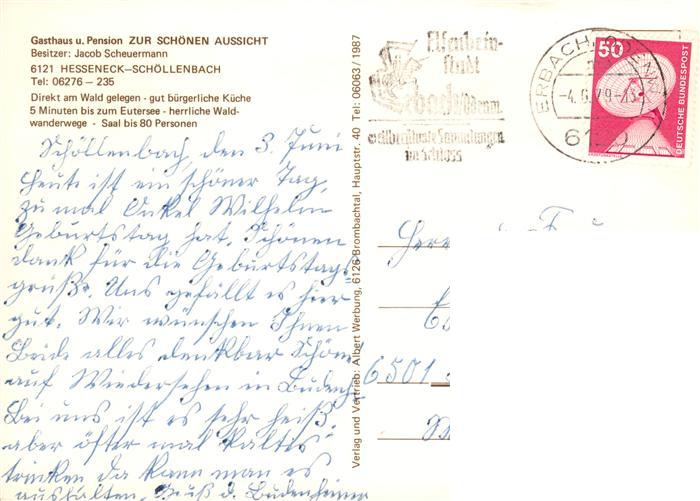 Gasthaus u. Pension ZUR SCHÖNEN AUSSICHT
Besitzer: Jacob Scheuermann
6121 HESSENECK—SCHÖLLENBACH
Tel: 06276 — 235
Direkt am Wald gelegen - gut bürgerliche Küche
5 Minuten bis zum Eutersee - herrliche Wald-
wanderwege - Saal bis 80 Personen
Schöllenbach, den 3. Juni
Heute ist ein schöner Tag,
zumal Onkel Wilhelm
Geburtstag hat. Schönen
dank für die Geburtstags
grüße. Uns gefällt es hier
gut. Wir wünschen Ihnen
Beide alles denkbar Schöne
auf Wiedersehen in Budenh
Bei uns ist es sehr heiß.
aber öfter mal kaltes
trinken da kann man es
aushalten. Gruß d. Budenheimer
Verlag und Vertrieb: Albert Werbung, 6126 Brombachtal, Hauptstr. 40 Tel: 06063/1987
Elfenbein-
stadt
Erbach/Odenw.
weltberühmte Sammlungen
im Schloss
ERBACH, ODENW
-4.6.79-13
6120
50
DEUTSCHE BUNDESPOST
Herrn
6501